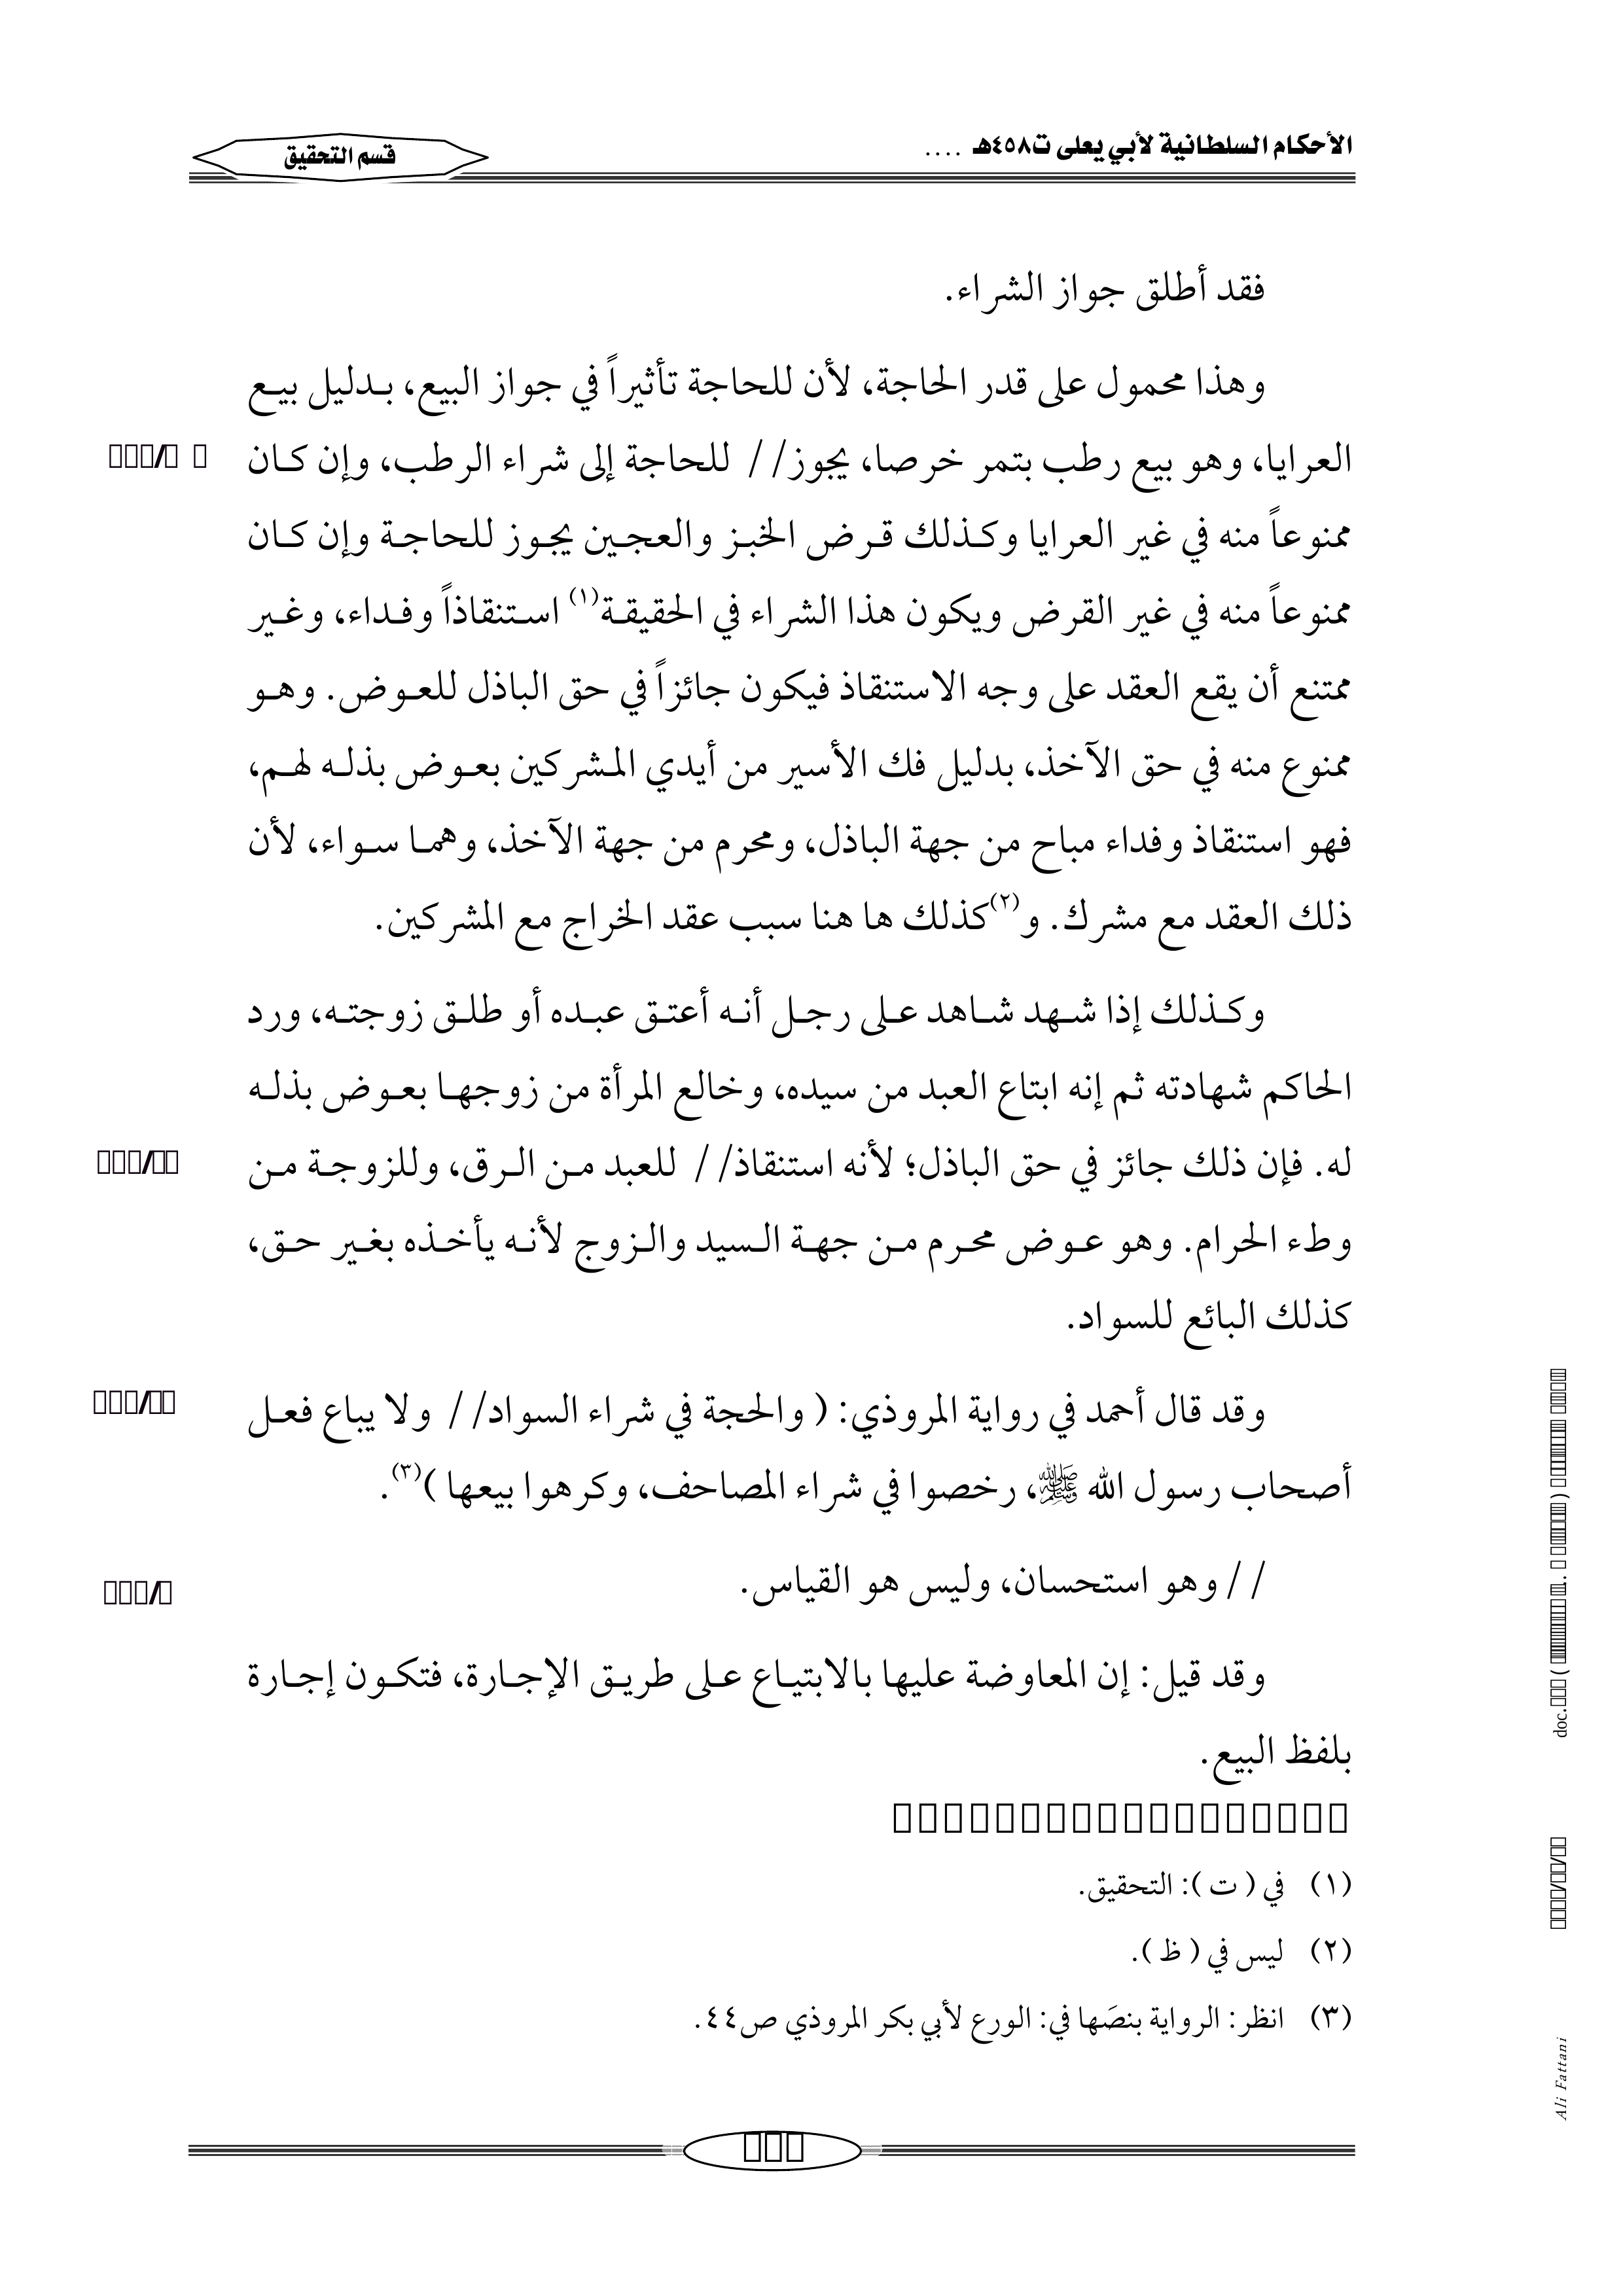 الأحكام السلطانية لأبي يعلى ت٤٥٨هـ ....
قسم التحقيق
فقد أطلق جواز الشراء.
وهذا محمول على قدر الحاجة، لأن للحاجة تأثيراً في جواز البيع، بدليل بيع
العرايا، وهو بيع رطب بتمر خرصا، يجوز// للحاجة إلى شراء الرطب، وإن كان
ممنوعاً منه في غير العرايا وكذلك قرض الخبز والعجين يجوز للحاجة وإن كان
ممنوعاً منه في غير القرض ويكون هذا الشراء في الحقيقة(١) استنقاذاً وفداء، وغير
ممتنع أن يقع العقد على وجه الاستنقاذ فيكون جائزاً في حق الباذل للعوض. وهو
ممنوع منه في حق الآخذ، بدليل فك الأسير من أيدي المشركين بعوض بذله لهم،
فهو استنقاذ وفداء مباح من جهة الباذل، ومحرم من جهة الآخذ، وهما سواء، لأن
ذلك العقد مع مشرك. و(٢)كذلك ها هنا سبب عقد الخراج مع المشركين.
وكذلك إذا شهد شاهد على رجل أنه أعتق عبده أو طلق زوجته، ورد
الحاكم شهادته ثم إنه ابتاع العبد من سيده، وخالع المرأة من زوجها بعوض بذله
له. فإن ذلك جائز في حق الباذل؛ لأنه استنقاذ// للعبد من الرق، وللزوجة من
وطء الحرام. وهو عوض محرم من جهة السيد والزوج لأنه يأخذه بغير حق،
كذلك البائع للسواد.
وقد قال أحمد في رواية المروذي: ( والحجة في شراء السواد// ولا يباع فعل
أصحاب رسول الله ﷺ، رخصوا في شراء المصاحف، وكرهوا بيعها )(٣).
// وهو استحسان، وليس هو القياس.
وقد قيل: إن المعاوضة عليها بالابتياع على طريق الإجارة، فتكون إجارة
بلفظ البيع.
(١) في ( ت ): التحقيق.
(٢) ليس في ( ظ ).
(٣) انظر: الرواية بنصَها في: الورع لأبي بكر المروذي ص٤٤.
doc.
Ali Fattani